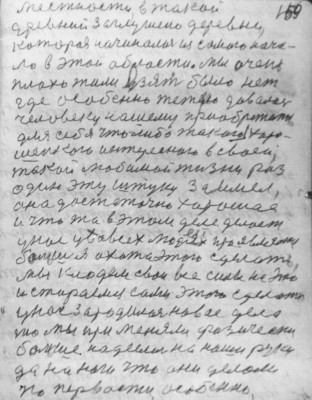 159
местности в такой
древний заглушено деревне,
которая начиналась из самого нача-
ло в этой области мы очень
плохо жили взять было нет
где особенно тежело давалось
человеку нашему приобретать
для себя что либо такого хоро-
шенького интересного в своей,
такой любимой жизни раз
одно эту штуку заимел
она достаточно хорошая
и что та в этом деле делает
у нас у всех людях проявляется
большая охота этого сделать
мы кладём свои все силы на это
и стараемся сами этого сделать
у нас зародилась новое дело
то мы применяли физически
больше надеялись на наши руки
да на ноги что они делали
по первости особенно,